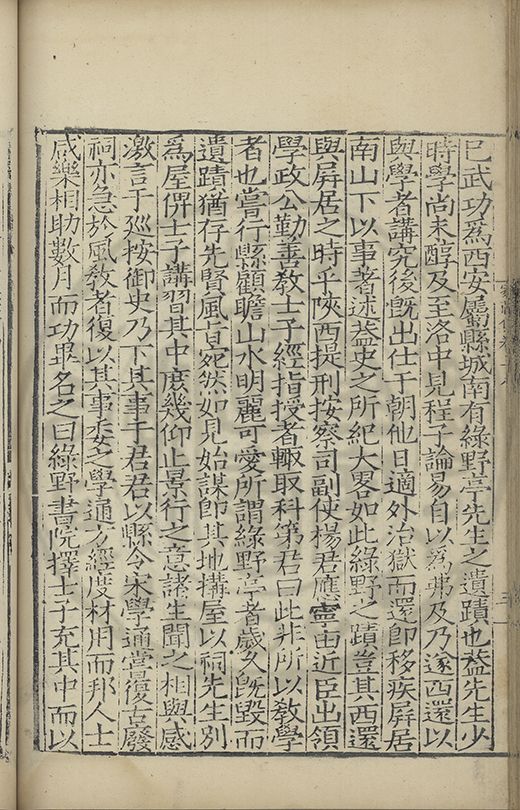 已武功為西安屬縣城南有綠野亭先生之遺蹟也葢先生少
時學尚未醇及至洛中見程子論易自以為弗及乃遂西還以
與學者講究後旣出仕于朝他日適外治獄而還卽移疾屏居
南山下以事著述葢史之所紀大畧如此綠野之蹟豈其西還
與屏居之時乎陝西提刑按察司副使楊君應寧由近臣出領
學政公勤善教士子經指授者輙取科第君曰此非所以教學
者也嘗行縣顧瞻山水明麗可愛所謂綠野亭者歲久旣毀而
遺蹟猶存先賢風㫖宛然如見始謀卽其地搆屋以祠先生別
為屋俾士子講習其中庶幾仰止景行之意諸生聞之相與感
激言于廵按御史乃下其事于君君以縣令宋學通嘗
祠亦急於風教者復以其事委之學通方經度材用而邦人士
咸樂相助數月而功畢名之曰綠野書院擇士子充其中而以